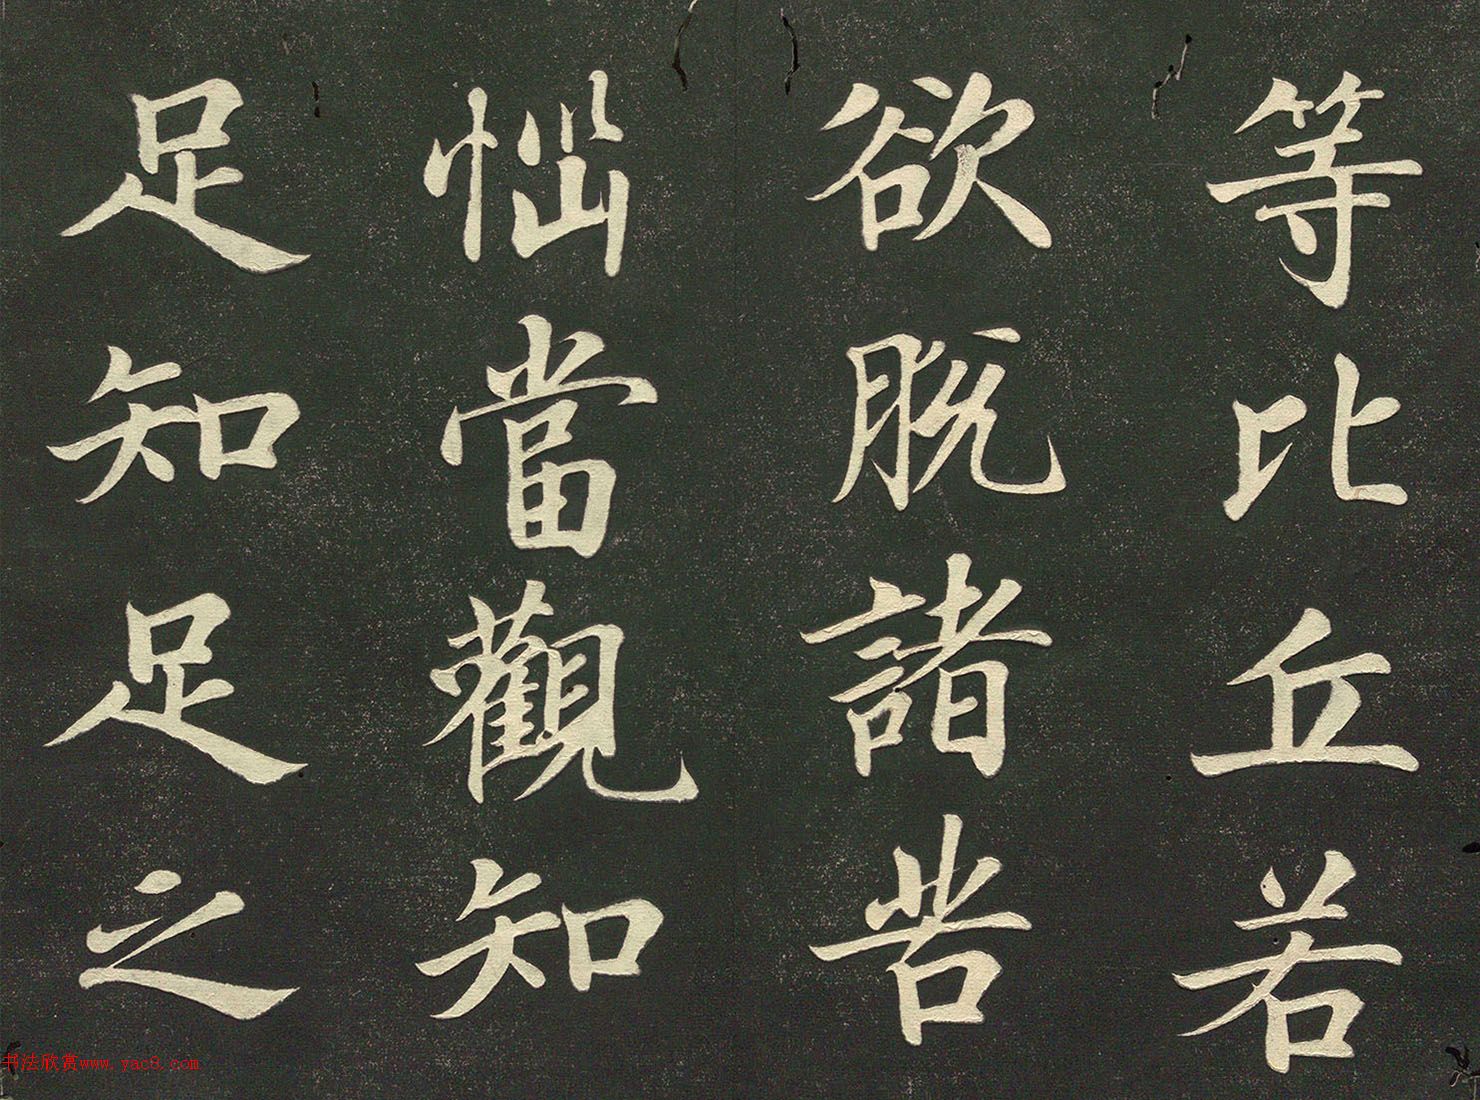 等比丘若
欲脫諸苦
惱當觀知
足知足之
书法欣赏www.yac8.com